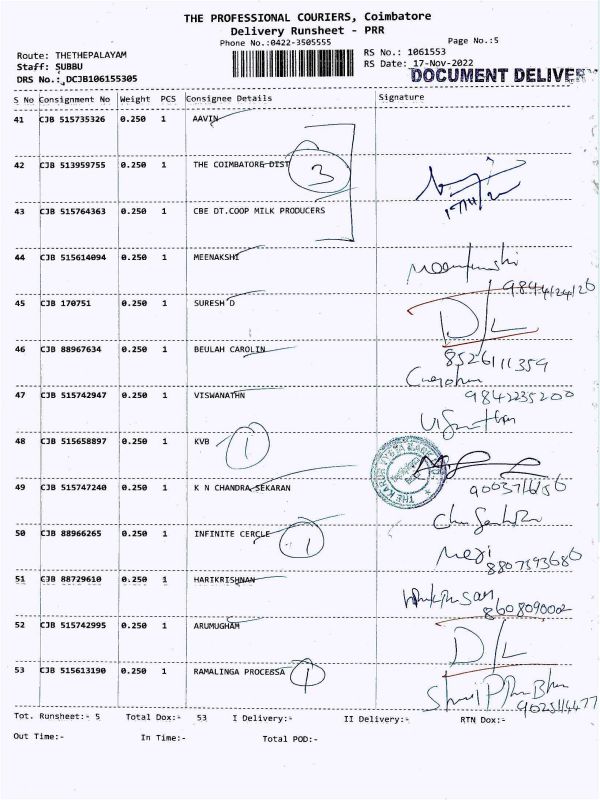 THE PROFESSIONAL COURIERS, Coimbatore
Delivery Runsheet - PRR
Phone No.:0422-3505555
Page No.:5
Route: THETHEPALAYAM
RS No.: 1061553
Staff: SUBBU
RS Date: 17-Nov-2022
DRS No.: DCJB106155305
DOCUMENT DELIVER
S No Consignment No Weight PCS Consignee Details Signature
41 CJB 515735326 0.250 1 AAVIN
42 CJB 513959755 0.250 1 THE COIMBATORE DIST 3
43 CJB 515764363 0.250 1 CBE DT.COOP MILK PRODUCERS
44 CJB 515614094 0.250 1 MEENAKSHI
45 CJB 170751 0.250 1 SURESH D D/L
46 CJB 88967634 0.250 1 BEULAH CAROLIN 8526111359
47 CJB 515742947 0.250 1 VISWANATHN 9842235200
48 CJB 515658897 0.250 1 KVB 1
49 CJB 515747240 0.250 1 K N CHANDRA SEKARAN
50 CJB 88966265 0.250 1 INFINITE CERCLE 1
51 CJB 88729610 0.250 1 HARIKRISHNAN 8608090002
52 CJB 515742995 0.250 1 ARUMUGHAM D/L
53 CJB 515613190 0.250 1 RAMALINGA PROCESSA 1
Tot. Runsheet:- 5 Total Dox:- 53 I Delivery:- II Delivery:- RTN Dox:-
Out Time:- In Time:- Total POD:-